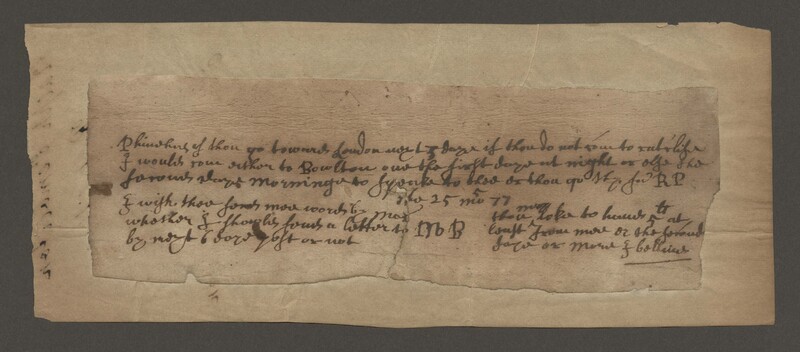 Phinehas if thou go towards London next 2 daye if thou do not com to
I would com either to Boulton one the first daye at night or else the
second dayes morninge to speake to thee er thou go thy RP
25 mo 77
I wish thee send mee word by
whether I should send a letter to MB
by next 6 daye post or not
thou mayst loke to have 5 at
least from mee er the second
daye or more I beleive